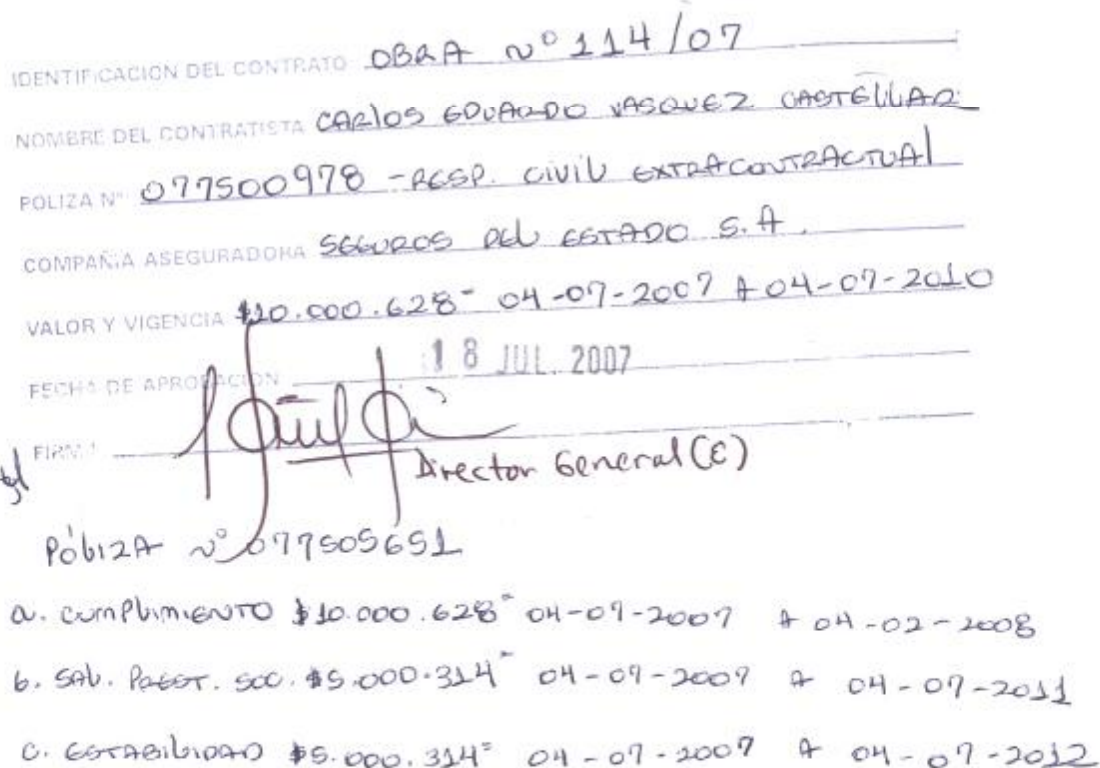 IDENTIFICACION DEL CONTRATO OBRA Nº 114/07
NOMBRE DEL CONTRATISTA CARLOS EDUARDO VASQUEZ CASTELLAR
POLIZA Nº 077500978 - RESP. CIVIL EXTRACONTRACTUAL
COMPAÑIA ASEGURADORA SEGUROS DEL ESTADO S.A.
VALOR Y VIGENCIA $10.000.628= 04-07-2007 A 04-07-2010
FECHA DE APROBACION 18 JUL. 2007
FIRMA
Director General (E)
PÓLIZA Nº 077505651
a. CUMPLIMIENTO $10.000.628= 04-07-2007 A 04-02-2008
b. SAL. PREST. SOC. $5.000.314= 04-07-2007 A 04-07-2011
c. ESTABILIDAD $5.000.314= 04-07-2007 A 04-07-2012